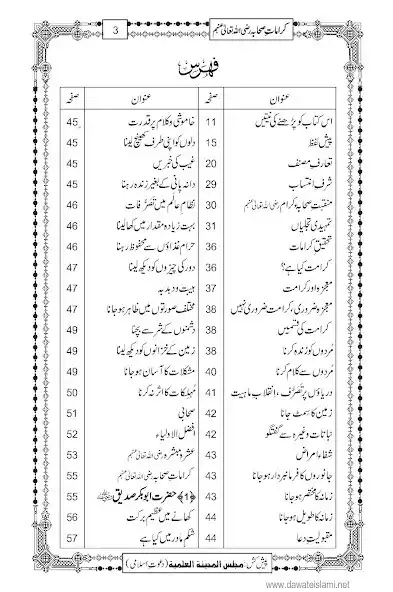 کراماتِ صحابہ رضی اللہ تعالیٰ عنہم 3
فہرس
عنوان صفحہ عنوان صفحہ
اس کتاب کو پڑھنے کی نیتیں 11 خاموشی و کلام پر قدرت 45
پیش لفظ 15 دلوں کو اپنی طرف کھینچ لینا 45
تعارفِ مصنف 20 غیب کی خبریں 45
شرفِ انتساب 29 دانہ پانی کے بغیر زندہ رہنا 45
منقبتِ صحابۂ کرام رضی اللہ تعالیٰ عنہم 30 نظامِ عالم میں تصرُّفات 46
تمہیدی تجلیاں 31 بہت زیادہ مقدار میں کھا لینا 46
تحقیقِ کرامات 36 حرام غذاؤں سے محفوظ رہنا 46
کرامت کیا ہے؟ 36 دور کی چیزوں کو دیکھ لینا 47
معجزہ اور کرامت 37 ہیبت و دبدبہ 47
معجزہ ضروری، کرامت ضروری نہیں 38 مختلف صورتوں میں ظاہر ہو جانا 47
کرامت کی قسمیں 38 دشمنوں کے شر سے بچنا 49
مُردوں کو زندہ کرنا 38 زمین کے خزانوں کو دیکھ لینا 49
مُردوں سے کلام کرنا 40 مشکلات کا آسان ہو جانا 49
دریاؤں پر تصَرُّف، انقلابِ ماہیت 41 مہلکات کا اثر نہ کرنا 50
زمین کا سمٹ جانا 42 صحابی 51
نباتات وغیرہ سے گفتگو 42 افضل الاولیاء 52
شفاءِ امراض 43 عشرہ مبشرہ رضی اللہ تعالیٰ عنہم 53
جانوروں کا فرمانبردار ہو جانا 43 کراماتِ صحابہ رضی اللہ تعالیٰ عنہم 55
زمانہ کا مختصر ہو جانا 43 ﴿1﴾ حضرت ابوبکر صدیق رضی اللہ تعالیٰ عنہ 55
زمانہ کا طویل ہو جانا 44 کھانے میں عظیم برکت 56
مقبولیتِ دعا 44 شکمِ مادر میں کیا ہے 57
پیش کش: مجلس المدینۃ العلمیۃ (دعوتِ اسلامی)
www.dawateislami.net